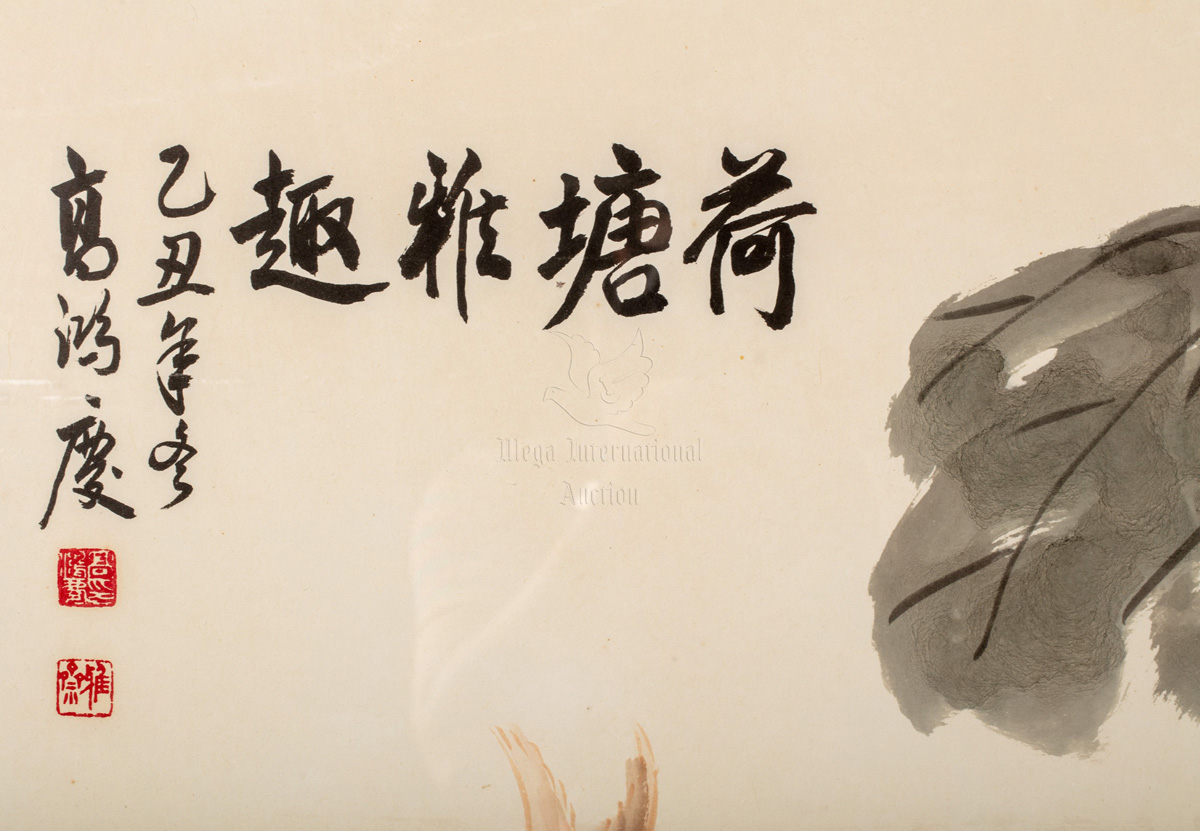 荷塘雅趣
乙丑年冬
高鸿庆
Mega International
Auction